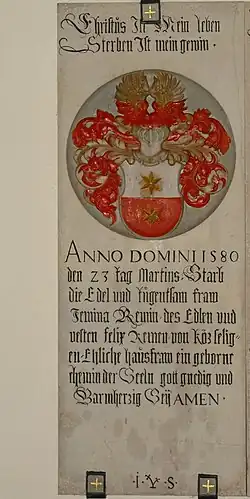 Christus Ist Mein leben
Sterben Ist mein gewin ·
ANNO DOMINI 1580
den 23 tag Martius Starb
die Edel und tugentsam fraw
Jemina Remin des Edlen vnd
vesten felix Remen von Köz selig-
en Ehliche hausfraw ein geborne
der Seeln gott gnedig und
Barmherzig Seÿ AMEN ·